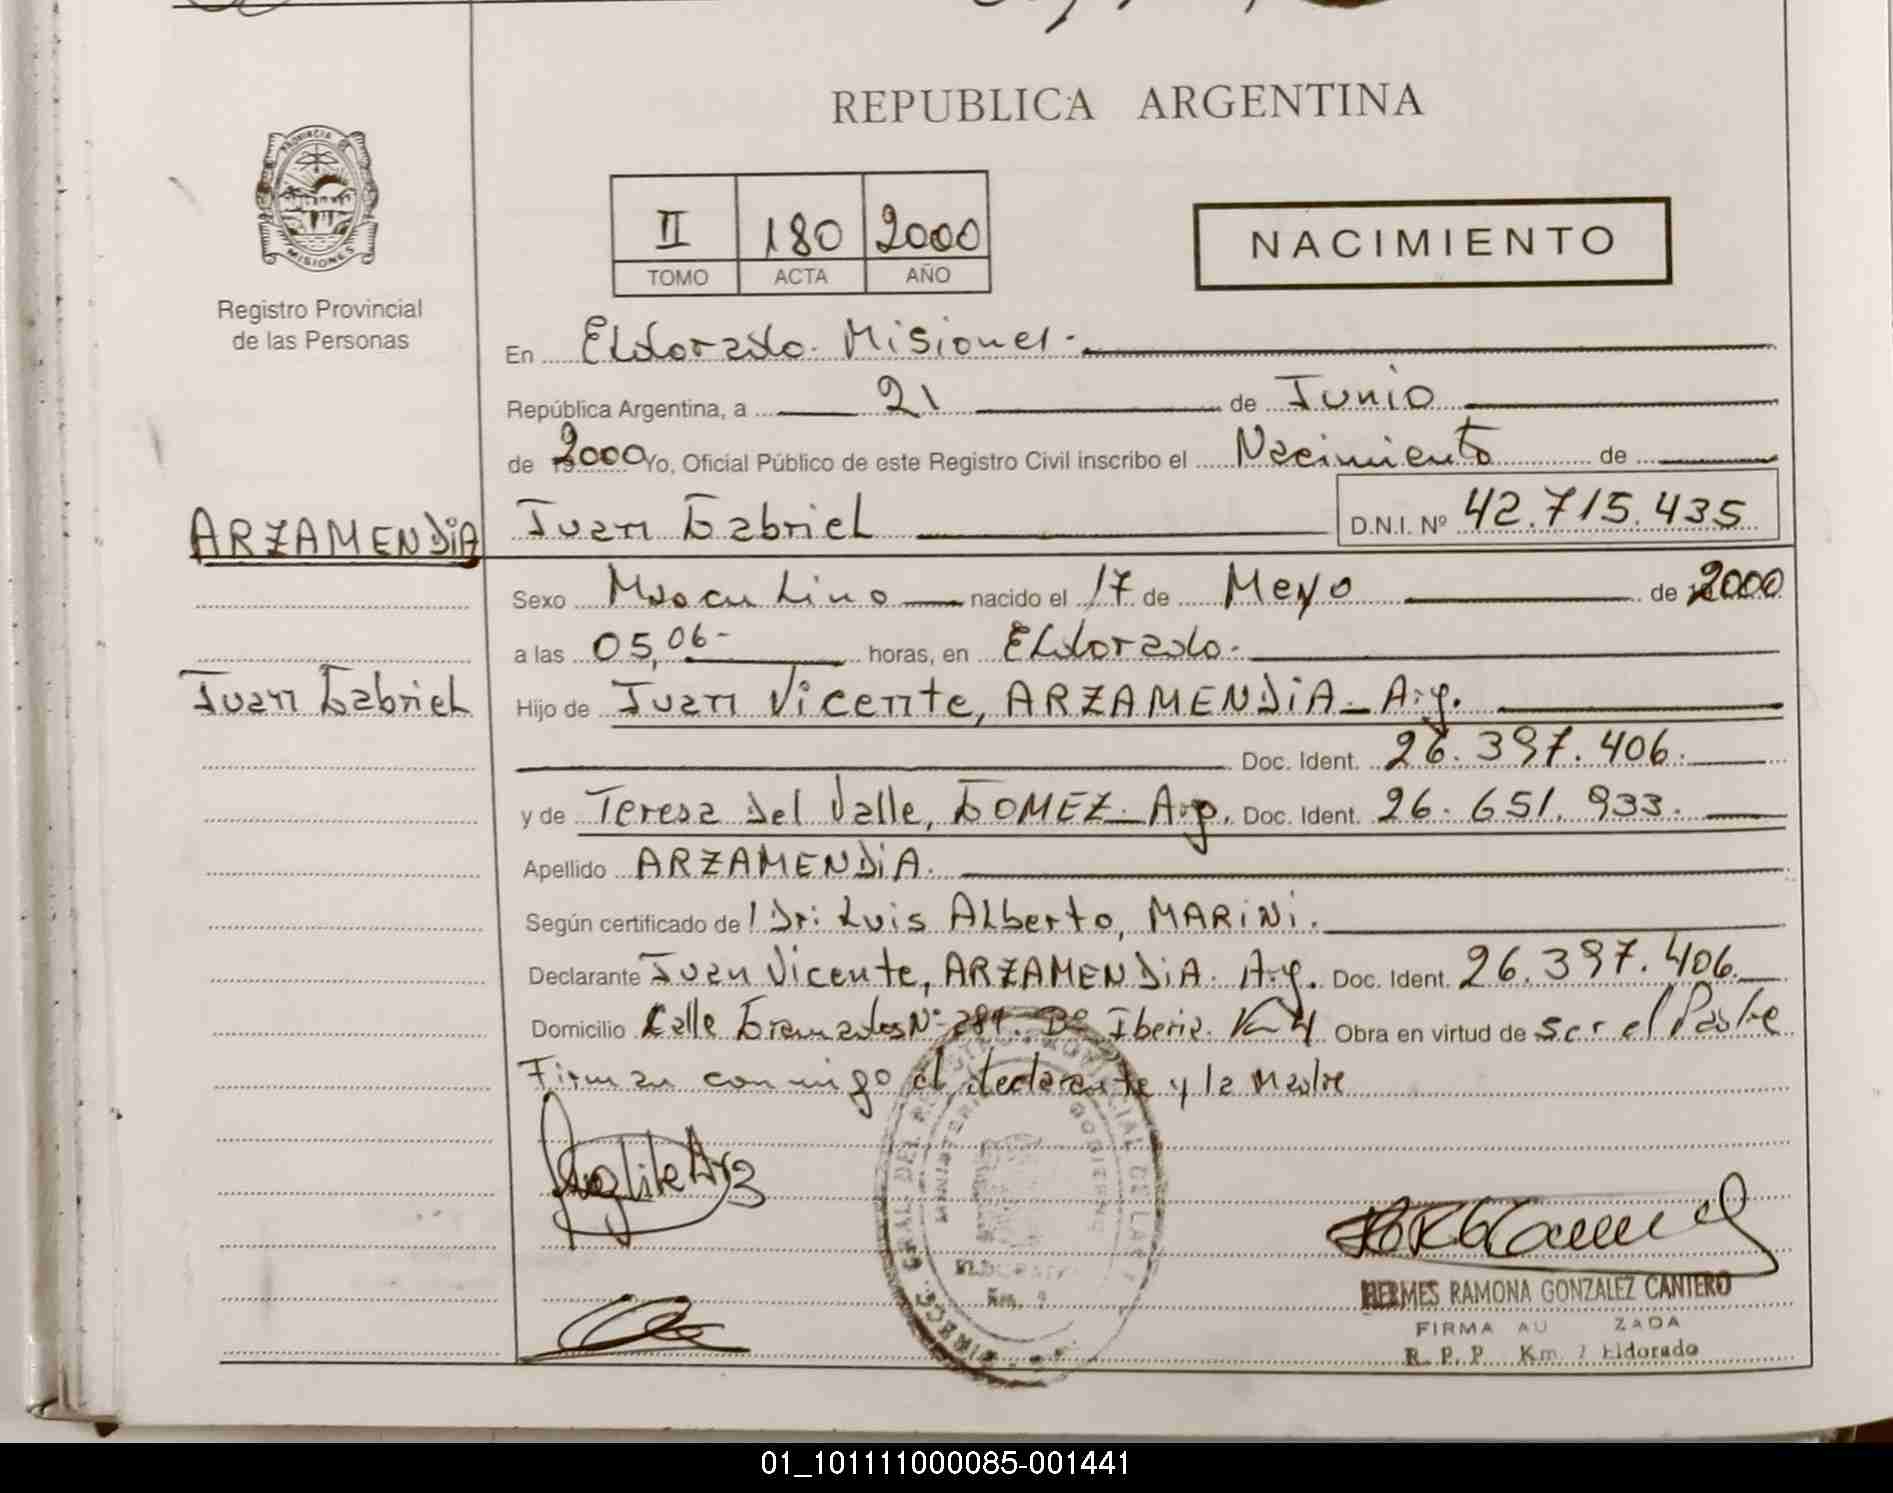 REPUBLICA ARGENTINA
PROVINCIA DE
MISIONES
Registro Provincial
de las Personas
II 180 2000
TOMO ACTA AÑO
NACIMIENTO
En Eldorado. Misiones.
República Argentina, a 21 de Junio
de 2000 Yo, Oficial Público de este Registro Civil inscribo el Nacimiento de
ARZAMENDIA Juan Gabriel D.N.I. Nº 42.715.435
Sexo Masculino nacido el 17 de Mayo de 2000
a las 05,06- horas, en Eldorado.
Juan Gabriel Hijo de Juan Vicente, ARZAMENDIA_ Arg.
Doc. Ident. 26.397.406.
y de Teresa del Valle, GOMEZ_ Arg. Doc. Ident. 26.651.933.
Apellido ARZAMENDIA.
Según certificado del Dr: Luis Alberto, MARINI.
Declarante Juan Vicente, ARZAMENDIA. Arg. Doc. Ident. 26.397.406.
Domicilio Calle Granados Nº 281. Bº Iberia. Km 4 Obra en virtud de ser el Padre
Firman conmigo el declarante y la Madre
HERMES RAMONA GONZALEZ CANTERO
FIRMA AU ZADA
R.P.P. Km. Eldorado
01_101111000085-001441